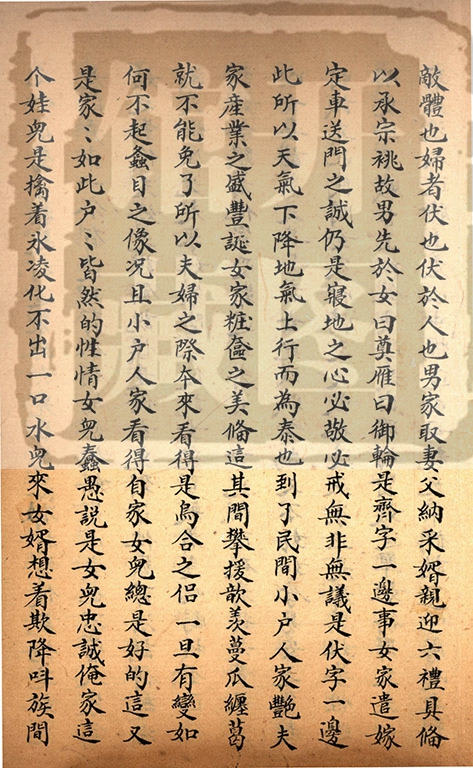 敵體也婦者伏也伏於人也男家取妻父納采婿親迎六禮具俻
以承宗祧故男先於女曰奠雁曰御輪是齊字一邊事女家遣嫁
定車送門之誠仍是寢地之心必敬必戒無非無議是伏字一邊
此所以天氣下降地氣上行而為泰也到了民間小户人家艷夫
家産業之盛豐誕女家粧奩之美俻這其間攀援歆羡蔓瓜纏葛
就不能免了所以夫婦之際夲來看得是烏合之侶一旦有變如
何不起蠡目之像况且小户人家看得自家女兒總是好的這又
是家〻如此户〻皆然的性情女兒蠢愚説是女兒忠誠俺家這
个娃兒是擒着氷凌化不出一口水兒來女婿想着欺降呌族間